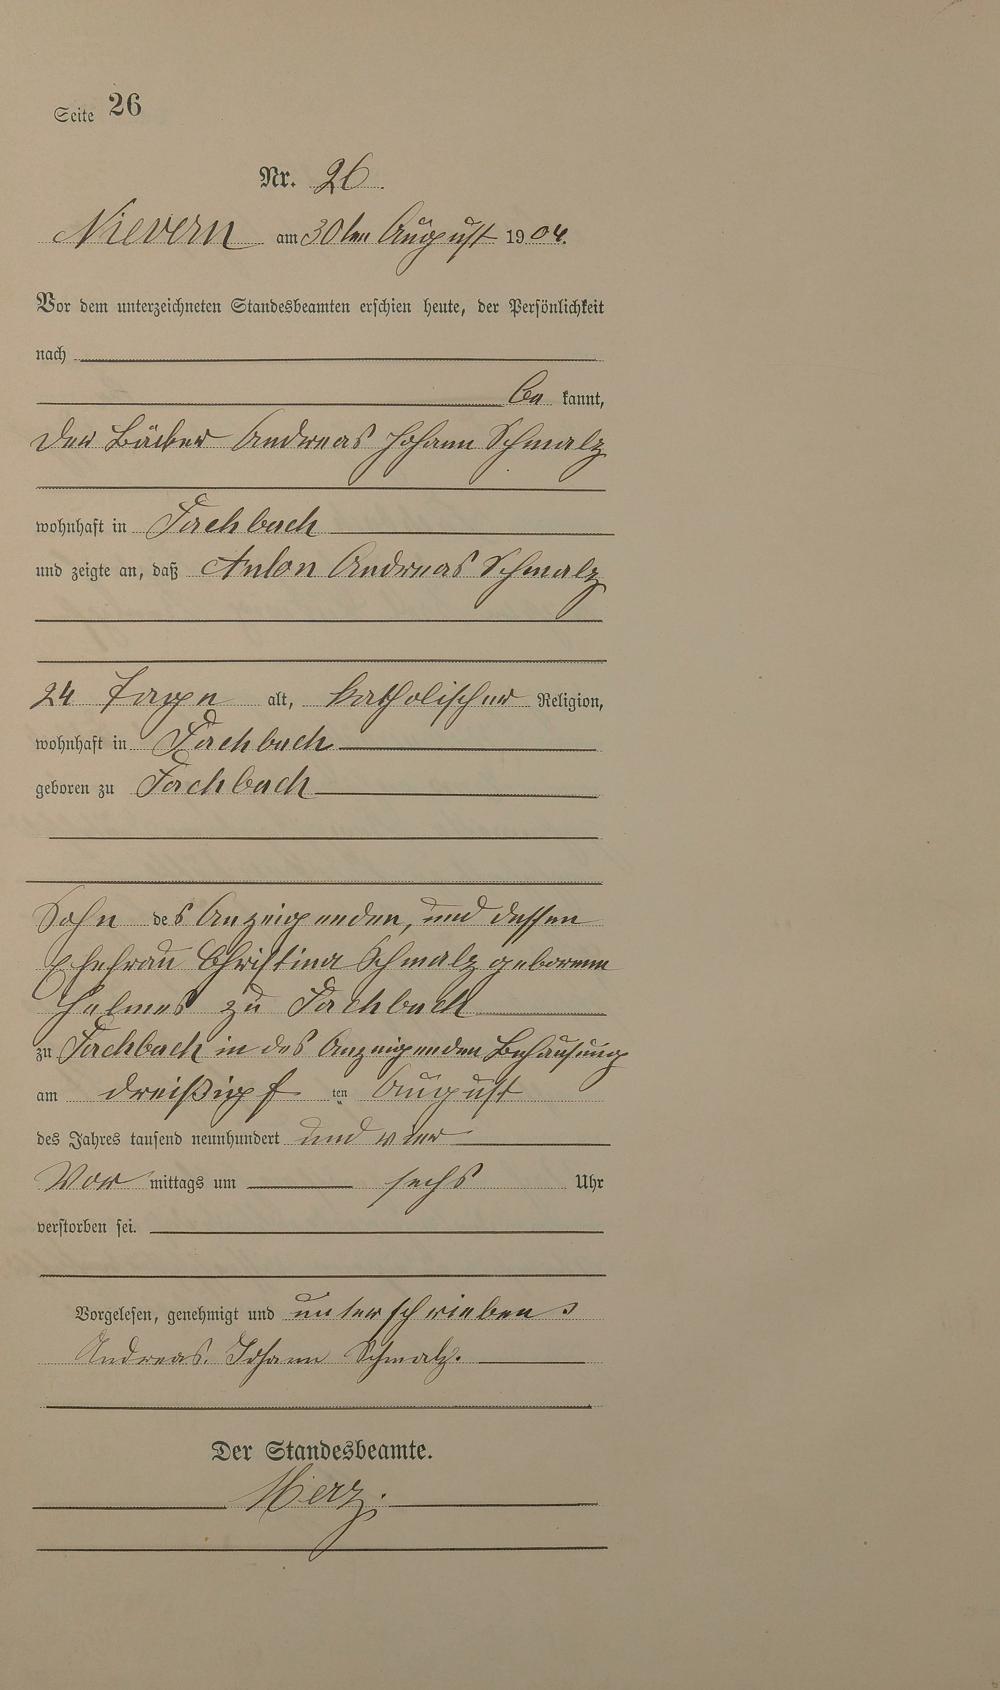 Seite 26
Nr. 26
Nievern am 30ten August 1904.
Vor dem unterzeichneten Standesbeamten erschien heute, der Persönlichkeit
nach
be kannt,
der Bäcker Andreas Johann Schmalz
wohnhaft in Fachbach
und zeigte an, daß Anton Andreas Schmalz
24 Tage alt, katholischer Religion,
wohnhaft in Fachbach
geboren zu Fachbach
Sohn des Anzeigenden, und dessen
Ehefrau Christina Schmalz geborenen
Helmes zu Fachbach
zu Fachbach in des Anzeigenden Behausung
am dreißigsten August
des Jahres tausend neunhundert und vier
Vor mittags um sechs Uhr
verstorben sei.
Vorgelesen, genehmigt und unterschrieben
Andreas. Johann Schmalz.
Der Standesbeamte.
Merz.